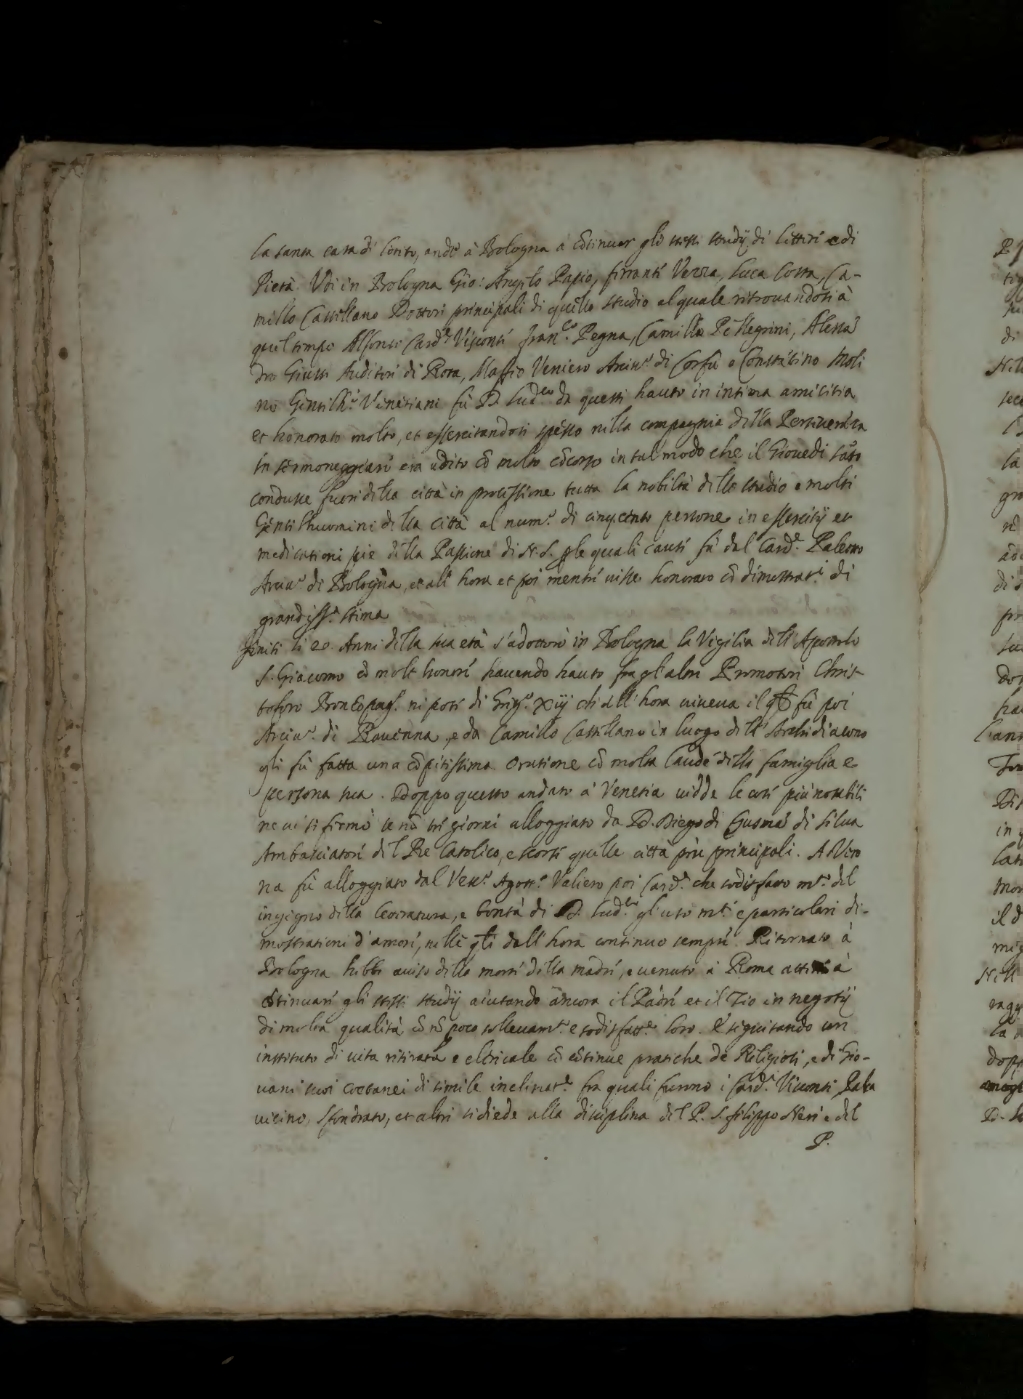 la santa casa di Loreto, andò à Bologna à cōtinuar gli stessi studij di lettere e di
Pietà. Udì in Bologna Gio: Angelo Papio, ferrante Vezza, Luca Cotta, Ca-
millo Castellano Dottori principali di quello studio al quale ritrouandosi à
quel tempo Alfonso Card.e Visconti fran.co Pegna, Camillo Pellegrini, Alessā
dro Giusti Auditori di Rota, Maffio Veniero Arciu.o di Corfù e Constātino Moli
no Gentilh.i Venetiani fù D. Lud.co da questi hauto in intima amicitia
et honorato molto, et essercitandosi spesso nella compagnia della Perseueranza
in sermoneggiare era udito cō molto cōcorso in tal modo che il Giouedi sāto
condusse fuori della città in processione tutta la nobiltà dello studio e molti
Gentilhuomini della città al num.o di cinqcento persone in essercitij et
meditationi pie della Passione di N. S. ple quali cause fù dal Card.e Paleotto
Arciu.o di Bologna, et all' hora et poi mentre uisse honorato cō dimostrat.i di
grandiss.a stima
finiti li 20 Anni della sua età s'addottorò in Bologna la Vigilia dell' Apostolo
S. Giacomo cō molti honori hauendo hauto fra gl'altri Promotori Chris-
toforo Boncōpag.i nipote di Greg.o xiij ch all' hora uiueua il qle fù poi
Arciu.o di Rauenna, e da Camillo Castellano in luogo dell' Archidiacono
gli fù fatta una cōpitissima oratione cō molta laude della famiglia e
persona sua. Doppo questo andato à Venetia uidde le cose più notabili
ne ui si fermò se nō tre giorni alloggiato da D. Diego di Gusmā di Silua
Ambasciatore del Re Catolico, e scorse quelle città più principali. A Vero
na fù alloggiato dal Vesc.o Agost.o Valiero poi Card.e che sodisfatto m.to del
ingegno della letteratura, e bontà di D. Lud.co gl'usò m.te e particolari di-
mostrationi d'amore, nelle qli dall' hora continuò sempre. Ritornato à
Bologna hebbe auiso della morte della madre, e uenuto à Roma attese à
cōtinuare gli stessi studij aiutando ancora il Padre et il Zio in negotij
di molta qualità cō nō poco solleuam.to e sodisfatt.e loro. E seguitando un
instituto di uita ritirata e clericale cō cōtinue pratiche de Religiosi, e di Gio-
uani suoi coetanei di simile inclinat.e fra quali furono i Card.i Visconti Pala
uicino, Sfondrato, et altri si diede alla disciplina del P. S. filippo Neri e del
P.